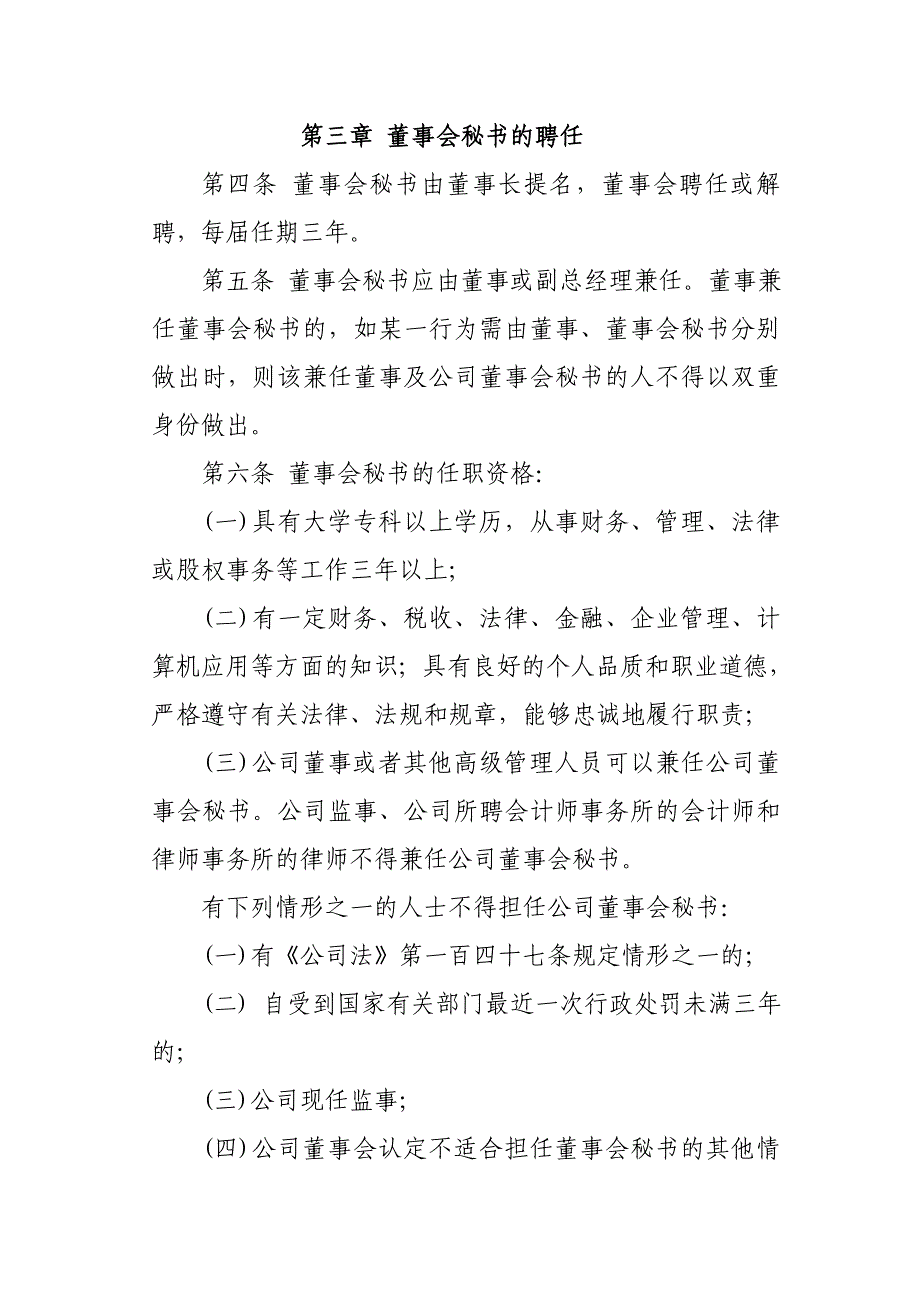 第三章 董事会秘书的聘任
第四条 董事会秘书由董事长提名，董事会聘任或解
聘，每届任期三年。
第五条 董事会秘书应由董事或副总经理兼任。董事兼
任董事会秘书的，如某一行为需由董事、董事会秘书分别
做出时，则该兼任董事及公司董事会秘书的人不得以双重
身份做出。
第六条 董事会秘书的任职资格：
(一)具有大学专科以上学历，从事财务、管理、法律
或股权事务等工作三年以上；
(二)有一定财务、税收、法律、金融、企业管理、计
算机应用等方面的知识；具有良好的个人品质和职业道德，
严格遵守有关法律、法规和规章，能够忠诚地履行职责；
(三)公司董事或者其他高级管理人员可以兼任公司董
事会秘书。公司监事、公司所聘会计师事务所的会计师和
律师事务所的律师不得兼任公司董事会秘书。
有下列情形之一的人士不得担任公司董事会秘书：
(一)有《公司法》第一百四十七条规定情形之一的；
(二) 自受到国家有关部门最近一次行政处罚未满三年
的；
(三)公司现任监事；
(四)公司董事会认定不适合担任董事会秘书的其他情